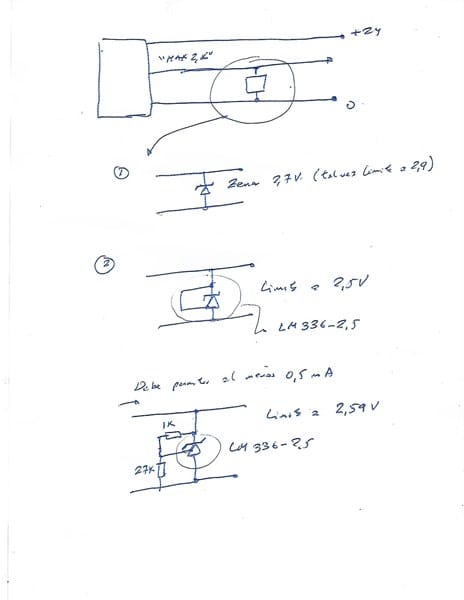 +24
"MAX 2,6"
0
① Zener 2,7V. (tal vez limite a 2,9)
②
Limit a 2,5V
LM336-2,5
Debe permitir al menos 0,5 mA
Limit a 2,59 V
1K
LM 336-2,5
27K